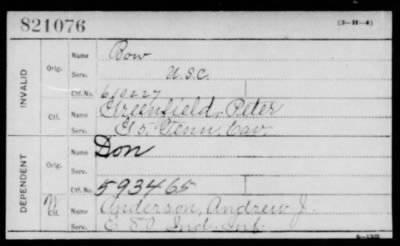 821076
(3-H-4)
INVALID
Orig.
Name Bow
Serv. U.S.C.
Ctf. No. 610227
Ctf.
Name Greenfield, Peter
Serv. G 5 Tenn. Cav.
DEPENDENT
Orig.
Name Don
Serv.
Ctf. No. 593465
W
Ctf.
Name Anderson, Andrew J.
Serv. E 50 Ind. Inf.